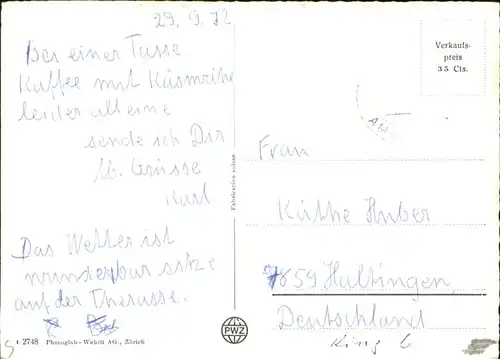 29. 9. 72
Bei einer Tasse
Kaffee mit Käsmrihe
leider alleine
sende ich Dir
lb. Grüsse
Karl
Das Wetter ist
wunderbar sitze
auf der Therasse.
2748 Photoglob-Wehrli AG., Zürich
Fabrication suisse
PWZ
Verkaufs-
preis
35 Cts.
Frau
Käthe Huber
7859 Haltingen
Deutschland